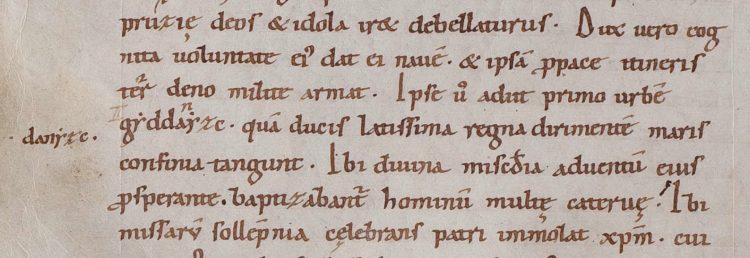 pruzię deos & idola iræ debellaturus. Dux vero cog
nita voluntate eiꝰ dat ei navē. & ipsā ꝓpace itineris
teͬ deno milite armat. Ipse uͦ adiit primo urbē
gẏddanẏzc. quā ducis latissima regna dirimentē maris
· danẏzc ·
confinia tangunt. Ibi divina misc̄dia adventū eius
ꝓsperante. baptizabant᷑ hominū multę catervę. Ibi
missarū sollēpnia cęlebrans patri immolat xp̄m. cui